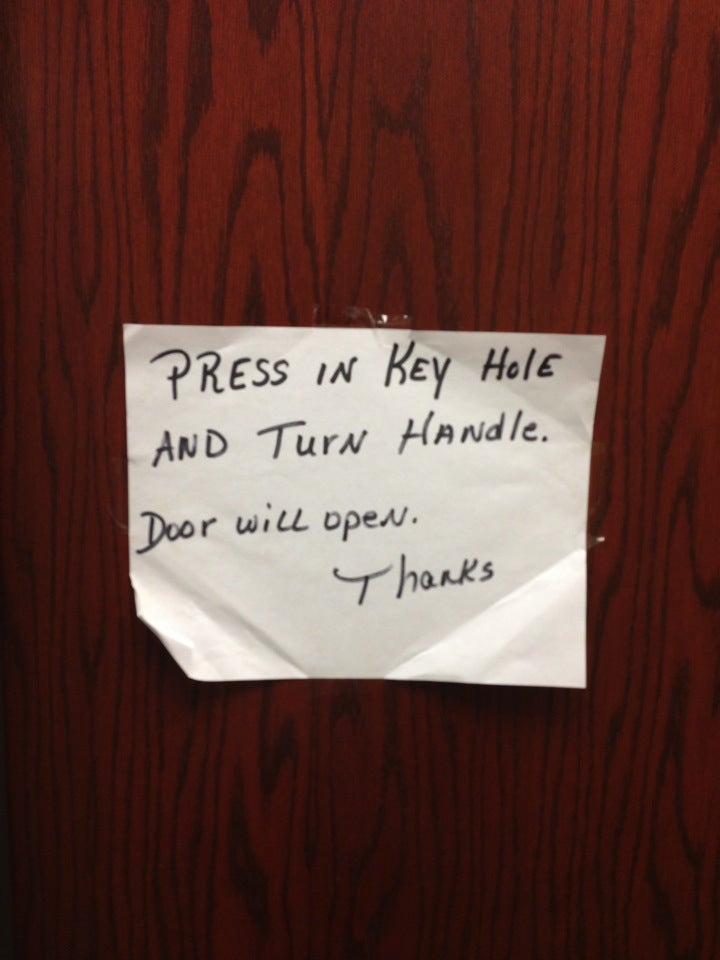 PRESS IN KEY HOLE
AND TURN HANDLE.
Door will open.
Thanks